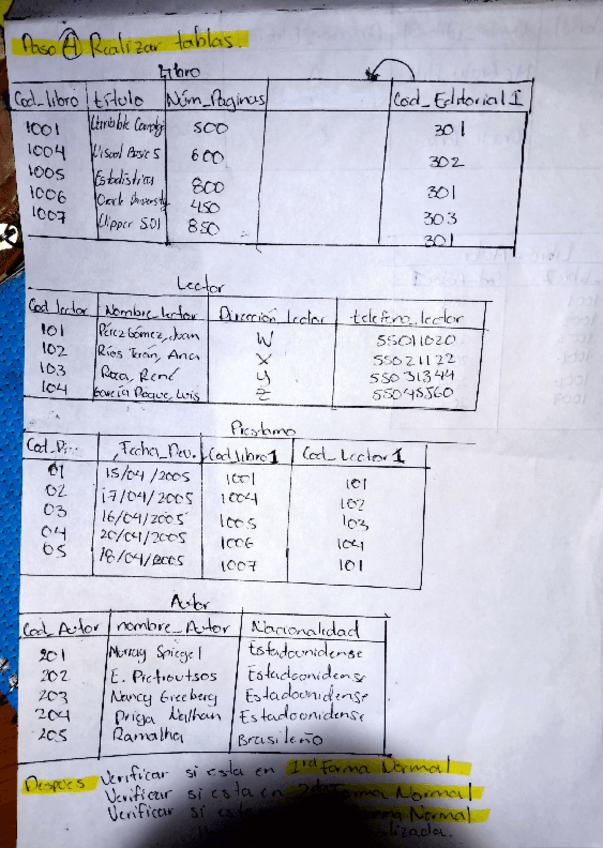 Paso 4 Realizar tablas.
Libro
Cod_libro título Núm_Paginas Cod_Editorial1
1001 Variable 500 301
1004 Visual Basic 5 600 302
1005 Estadística 800 301
1006 Oracle University 450 303
1007 Clipper 5.01 850 301
Lector
Cod_lector Nombre_lector Dirección_lector telefono_lector
101 Pérez Gómez, Juan W 55011020
102 Ríos Terán, Ana X 55021122
103 Roca, René Y 55031344
104 García Roque, Luis Z 55045560
Prestamo
Fecha_Dev. Cod_libro1 Cod_Lector1
01 15/04/2005 1001 101
02 17/04/2005 1004 102
03 16/04/2005 1005 103
04 20/04/2005 1006 104
05 18/04/2005 1007 101
Autor
Cod_Autor nombre_Autor Nacionalidad
201 Murray Spiegel Estadounidense
202 E. Petroutsos Estadounidense
203 Nancy Greeberg Estadounidense
204 Priya Nathan Estadounidense
205 Ramalho Brasileño
Despues Verificar si esta en 1ra Forma Normal
Verificar si esta en 2da Forma Normal
Verificar si Forma Normal